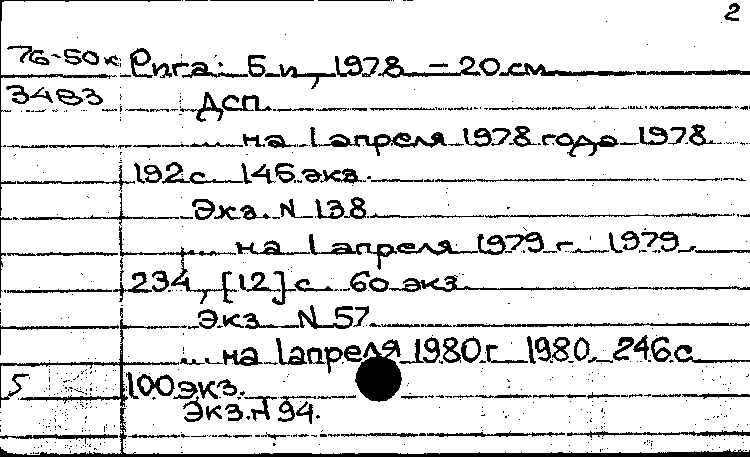 2
76-50к Рига: Б и, 1978 - 20 см
3483 Дсп.
... на 1 апреля 1978 года 1978.
192 с. 146 экз.
Экз. N 138
... на 1 апреля 1979 г. 1979.
234, [12] с. 60 экз.
Экз. N 57.
... на 1 апреля 1980 г 1980. 246 с
5 100 экз.
Экз. N 94.